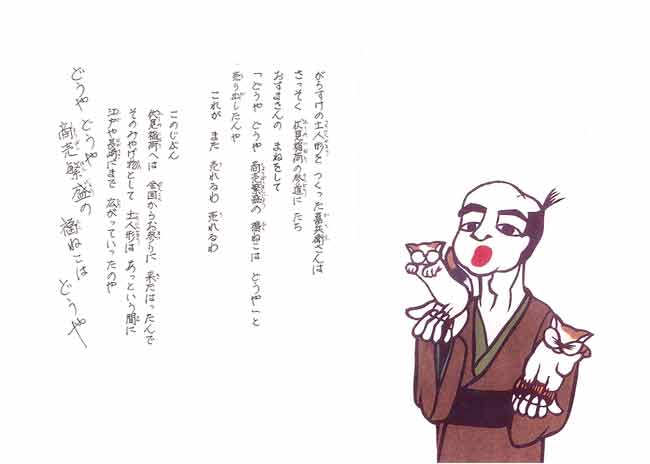 がらすけの土人形を つくった嘉兵衛さんは
さっそく 伏見稲荷の参道に たち
おすまさんの まねをして
「どうや どうや 商売繁盛の 福ねこは どうや」と
売り出したんや
これが また 売れるわ 売れるわ
このじぶん
伏見稲荷へは 全国からお参りに 来たはったんで
そのみやげ物として 土人形は あっという間に
江戸や長崎にまで 広がっていったのや
どうや どうや
商売繁盛の 福ねこは どうや